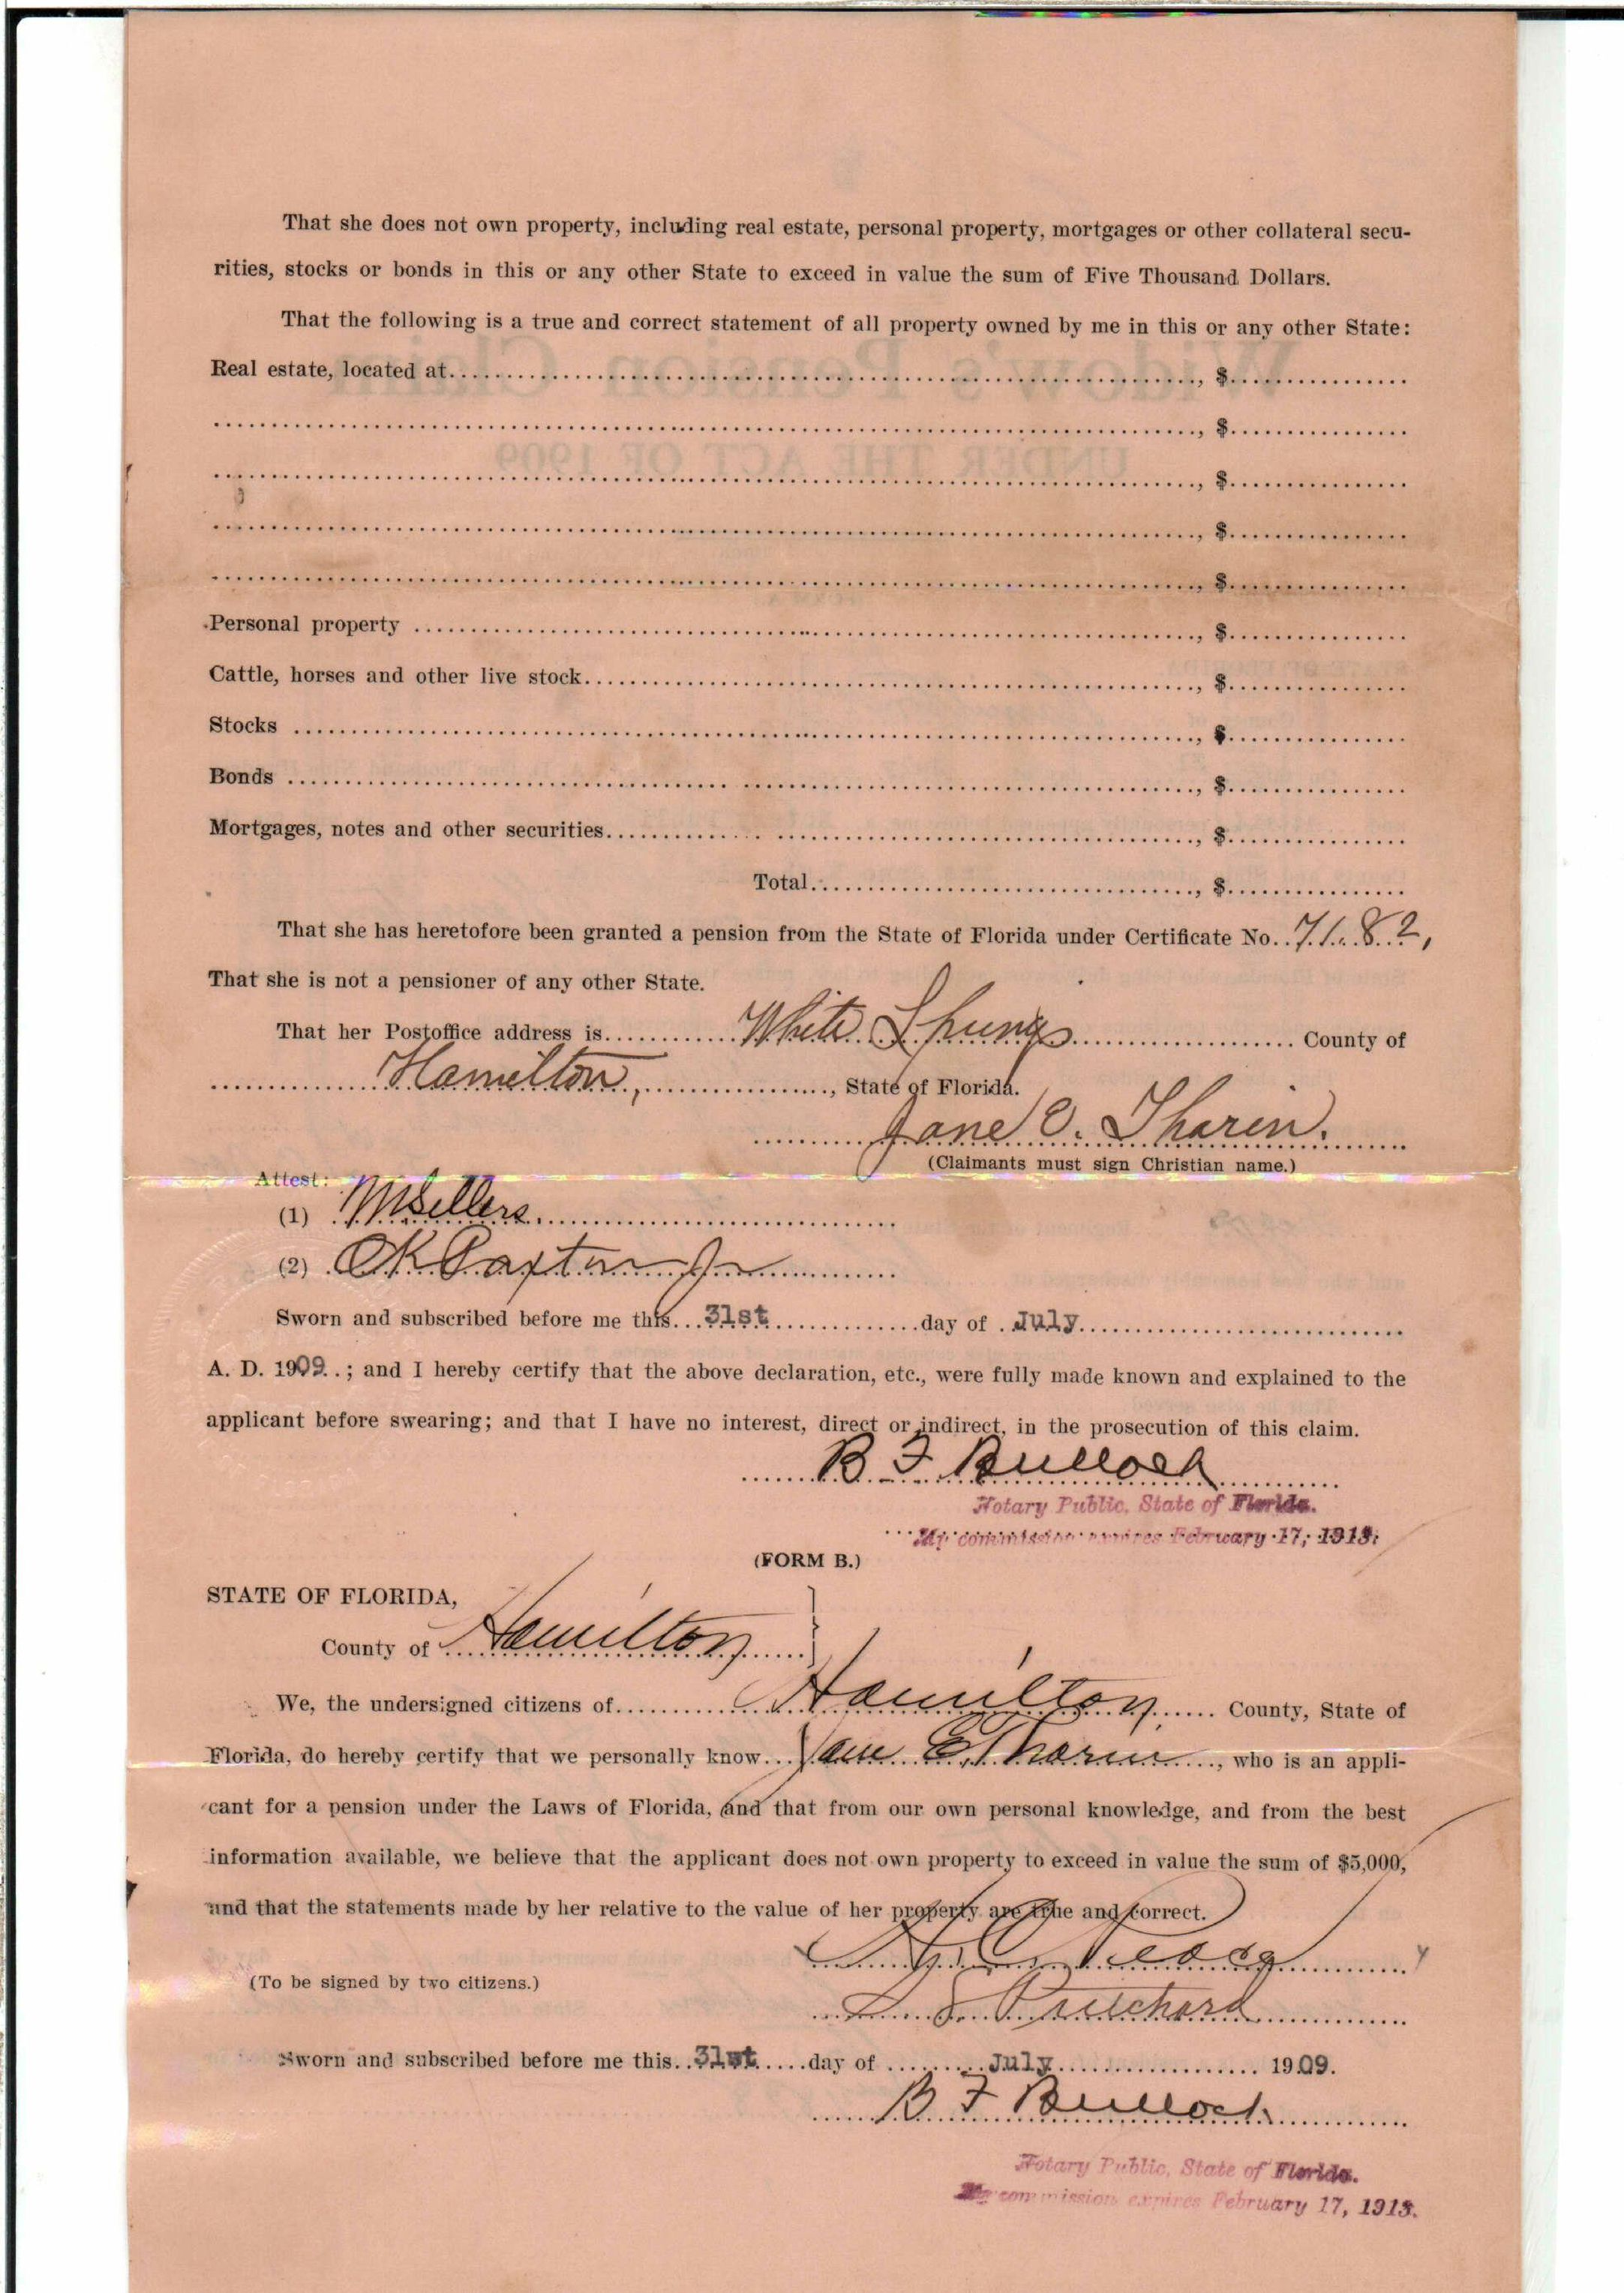 That she does not own property, including real estate, personal property, mortgages or other collateral secu-
rities, stocks or bonds in this or any other State to exceed in value the sum of Five Thousand Dollars.
That the following is a true and correct statement of all property owned by me in this or any other State:
Real estate, located at........, $........
........, $........
........, $........
........, $........
........, $........
Personal property ........, $........
Cattle, horses and other live stock........, $........
Stocks ........, $........
Bonds ........, $........
Mortgages, notes and other securities........, $........
Total........, $........
That she has heretofore been granted a pension from the State of Florida under Certificate No. 7182,
That she is not a pensioner of any other State.
That her Postoffice address is White Springs County of
Hamilton, , State of Florida.
Jane E. Tharin.
(Claimants must sign Christian name.)
Attest:
(1) M Sellers
(2) OK Paxton Jr
Sworn and subscribed before me this 31st day of July
A. D. 1909 ; and I hereby certify that the above declaration, etc., were fully made known and explained to the
applicant before swearing; and that I have no interest, direct or indirect, in the prosecution of this claim.
B F Bullock
Notary Public, State of Florida.
My commission expires February 17, 1913.
(FORM B.)
STATE OF FLORIDA,
County of Hamilton
We, the undersigned citizens of Hamilton County, State of
Florida, do hereby certify that we personally know Jane E Tharin , who is an appli-
cant for a pension under the Laws of Florida, and that from our own personal knowledge, and from the best
information available, we believe that the applicant does not own property to exceed in value the sum of $5,000,
and that the statements made by her relative to the value of her property are true and correct.
(To be signed by two citizens.)
Sworn and subscribed before me this 31st day of July 1909.
B F Bullock
Notary Public, State of Florida.
My commission expires February 17, 1913.